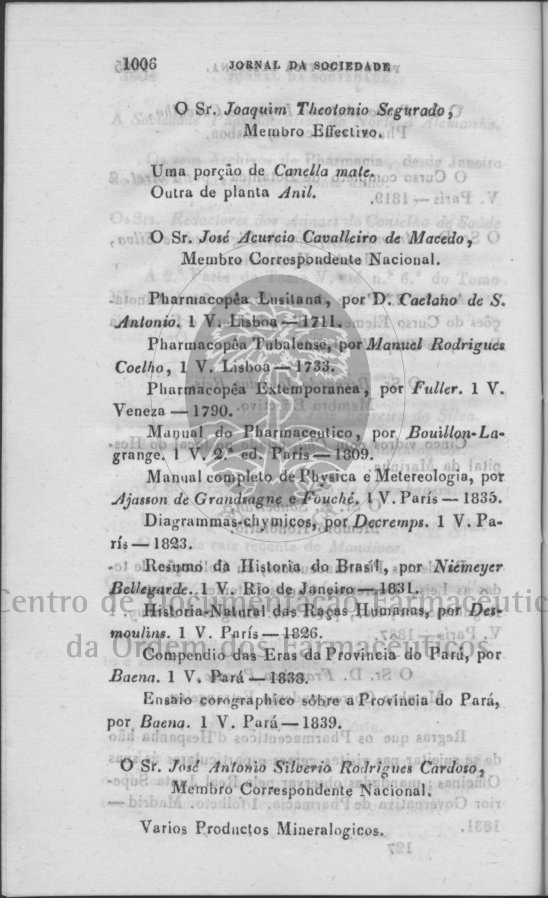 1006 JORNAL DA SOCIEDADE
O Sr. Joaquim Theotonio Segurado,
Membro Effectivo.
Uma porção de Canella mate.
Outra de planta Anil.
O Sr. José Acurcio Cavalleiro de Macedo,
Membro Correspondente Nacional.
Pharmacopêa Lusitana, por D. Caetano de S.
Antonio. 1 V. Lisboa — 1711.
Pharmacopêa Tubalense, por Manuel Rodrigues
Coelho, 1 V. Lisboa — 1733.
Pharmacopêa Extemporanea, por Fuller. 1 V.
Veneza — 1790.
Manual do Pharmaceutico, por Bouillon-La-
grange. 1 V. 2.ª ed. París — 1809.
Manual completo de Physica e Metereologia, por
Ajasson de Grandsagne e Fouché. 1 V. París — 1835.
Diagrammas chymicos, por Decremps. 1 V. Pa-
rís — 1823.
Resumo da Historia do Brasil, por Niémeyer
Bellegarde. 1 V. Rio de Janeiro — 1831.
Centro de Documentação Farmacêutica
Historia Natural das Raças Humanas, por Des-
moulins. 1 V. París — 1826.
da Ordem dos Farmacêuticos
Compendio das Eras da Provincia do Pará, por
Baena. 1 V. Pará — 1838.
Ensaio corographico sôbre a Provincia do Pará,
por Baena. 1 V. Pará — 1839.
O Sr. José Antonio Silverio Rodrigues Cardoso,
Membro Correspondente Nacional.
Varios Productos Mineralogicos.